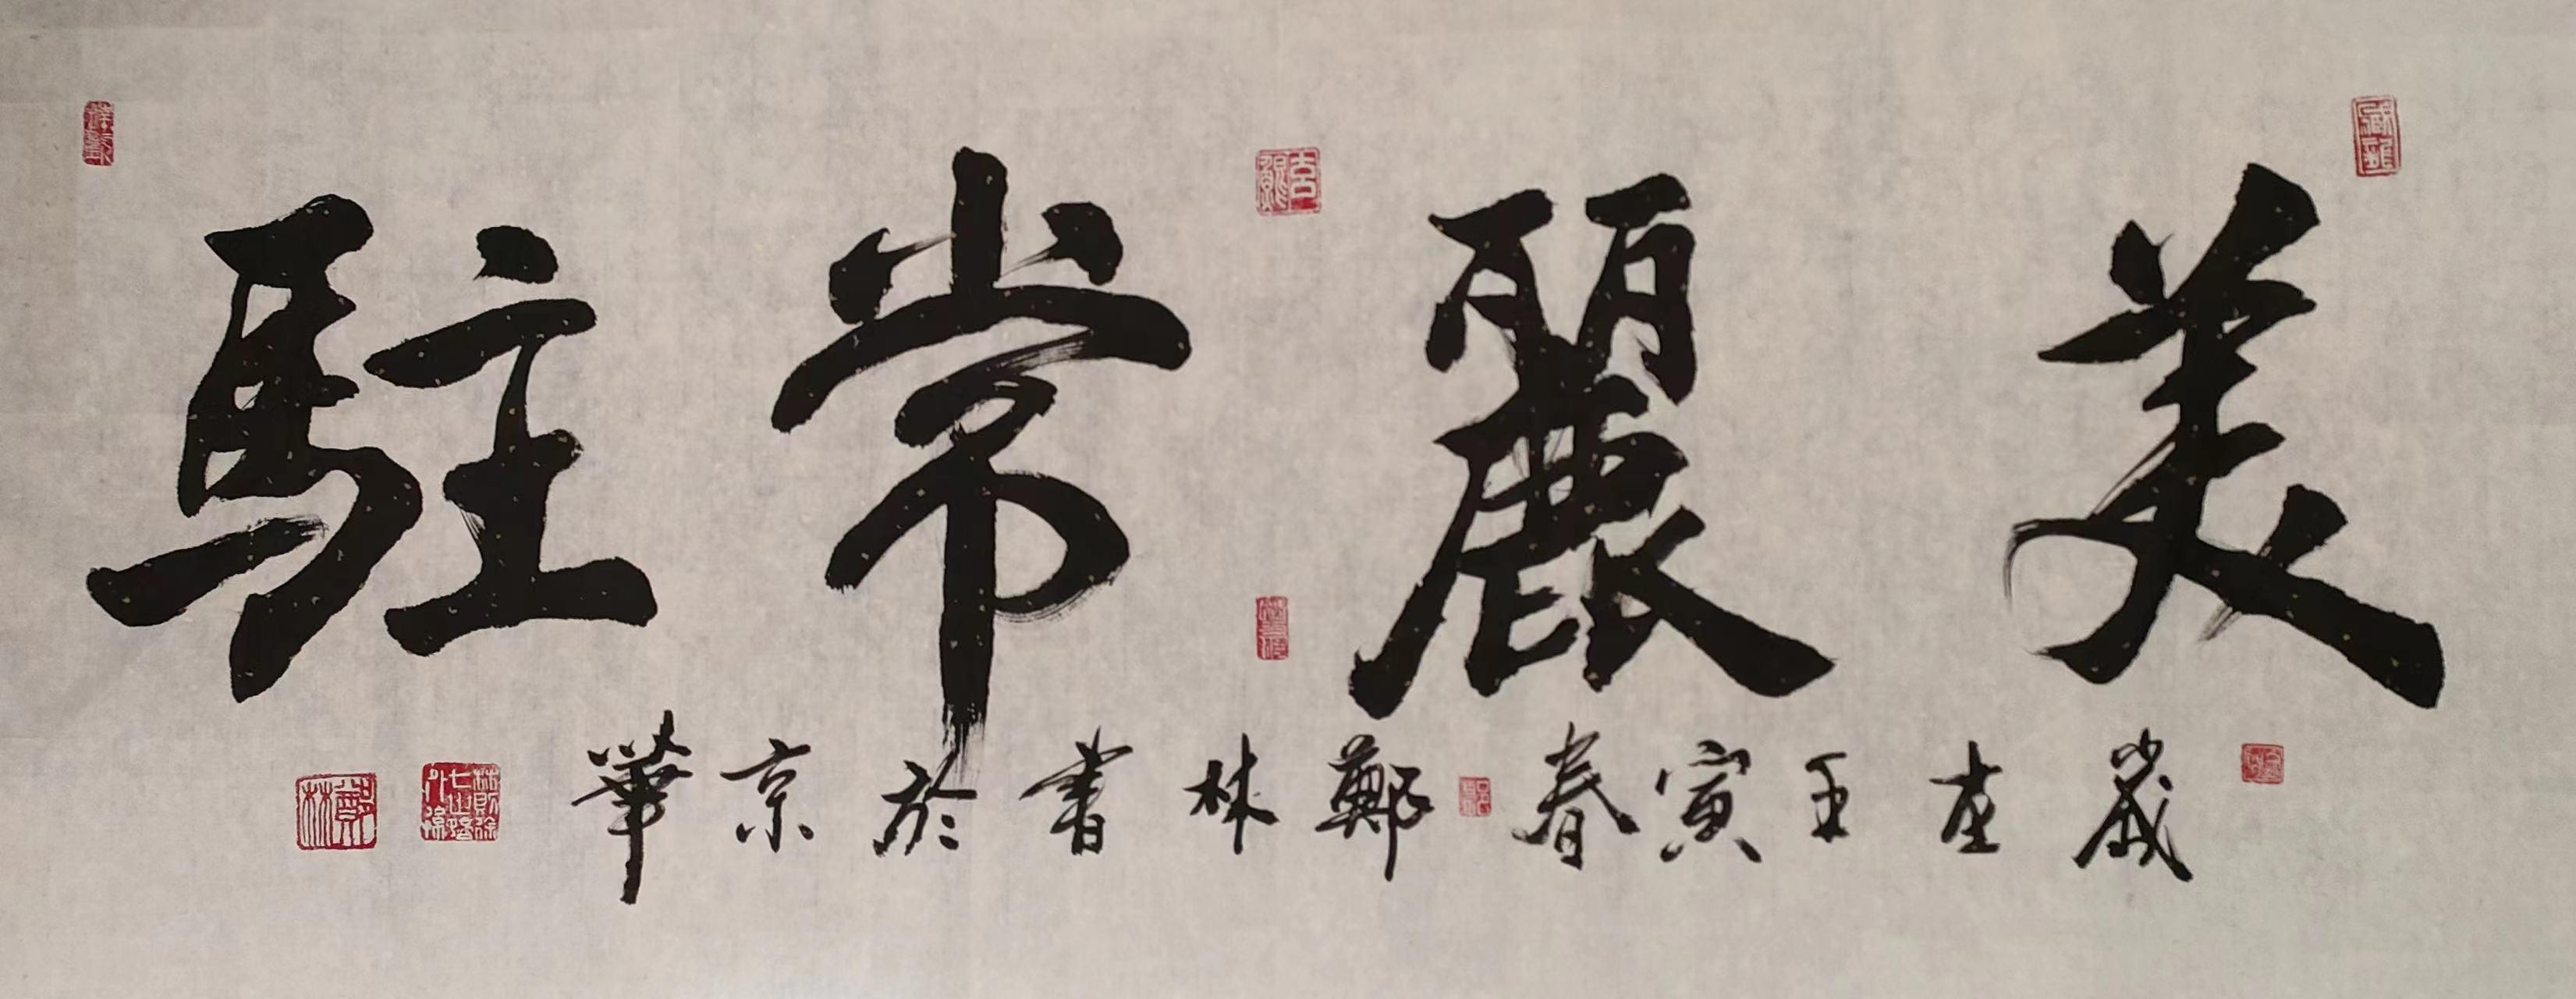 美麗常駐
歲在壬寅春鄭林書於京華
鄭林